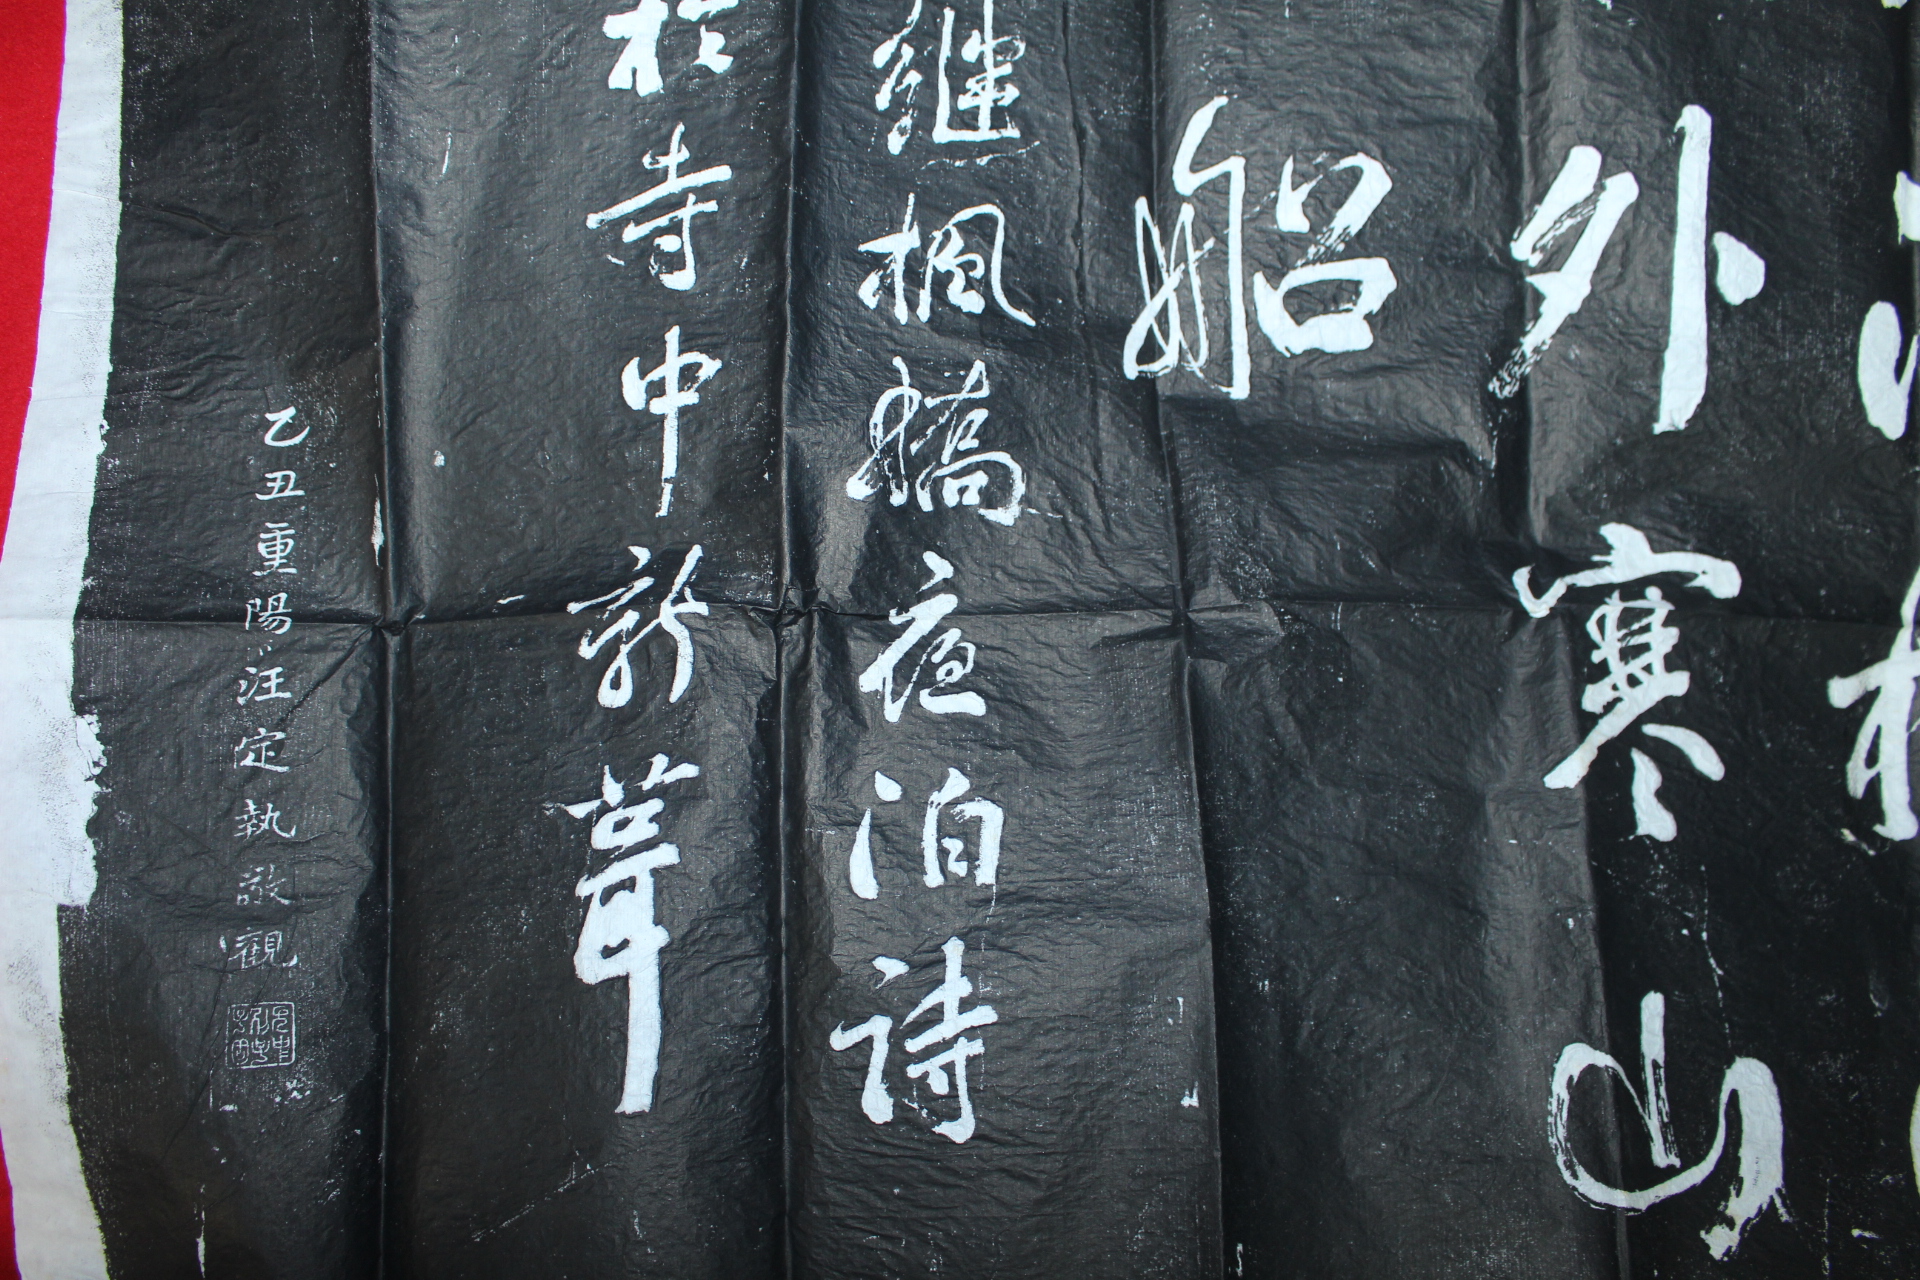 外寒山
船
继楓橋夜泊詩
於寺中新葺
乙丑重陽汪定執敬觀